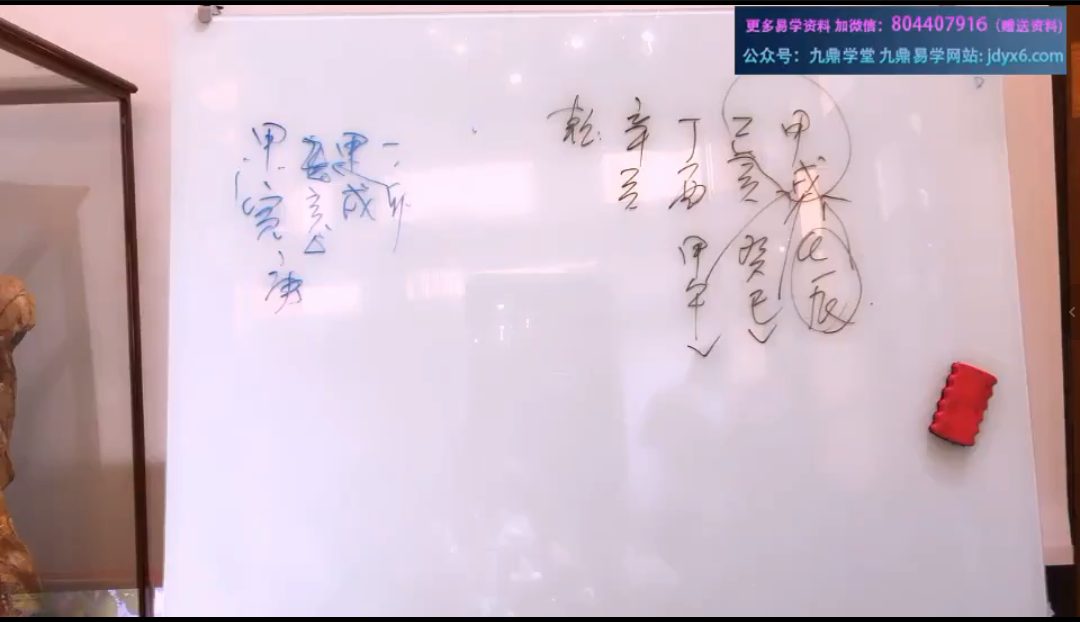 更多易学资料 加微信：804407916（赠送资料)
公众号：九鼎学堂 九鼎易学网站: jdyx6.com
乾: 辛 丁 己 甲
酉 亥 戌
甲 癸
午 巳 辰
甲 甲
寅 亥 戌